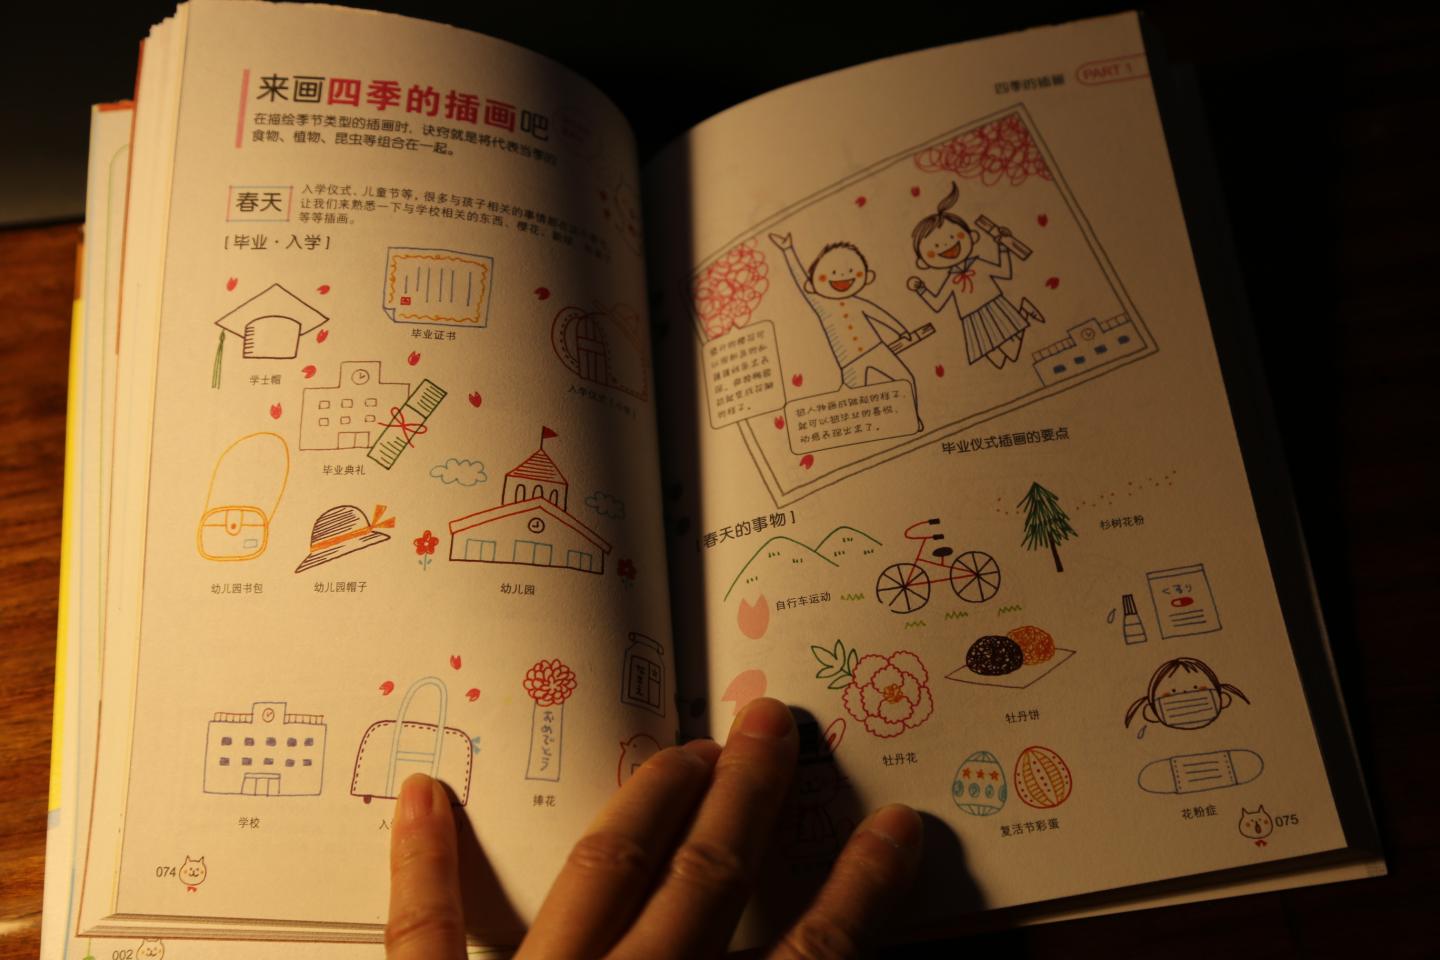 来画四季的插画吧
在描绘季节类型的插画时，诀窍就是将代表当季的
食物、植物、昆虫等组合在一起。
春天
入学仪式、儿童节等，很多与孩子相关的事情都
让我们来熟悉一下与学校相关的东西、樱花、
等等插画。
[ 毕业·入学 ]
毕业证书
学士帽
毕业典礼
幼儿园书包
幼儿园帽子
幼儿园
学校
おめでとう
捧花
074
002
四季的插画
PART 1
把人物画成跳跃的样子，
就可以把毕业的喜悦、
动感表现出来了。
毕业仪式插画的要点
[ 春天的事物 ]
杉树花粉
自行车运动
くすり
牡丹饼
牡丹花
复活节彩蛋
花粉症
075